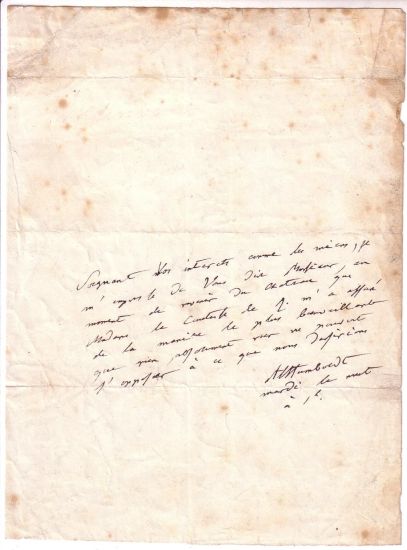 Soignant Vos interets comme les miens, je
m'empresse de Vous dire Monsieur, au
moment de revenir du chateau que
Madame la Comtesse de R. m'a assuré
de la manière la plus bienveillante
que rien absolument rien ne pouvait
s'opposer à ce que nous desirions
AHumboldt
mardi la nuit
à 1h.